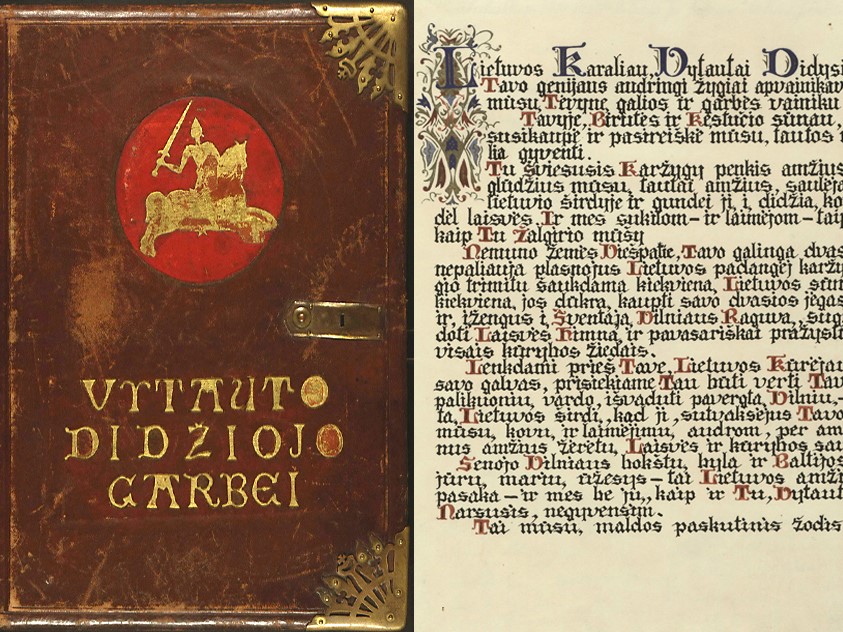 VYTAUTO
DIDŽIOJO
GARBEI
Lietuvos Karaliau, Vytautai Didysi
Tavo genijaus audringi žygiai apvainikav
mūsų Tėvynę galios ir garbės vainiku
Tavyje, Birutės ir Kęstučio sūnau,
susikaupė ir pasireiškė mūsų tautos
lia gyventi.
Tu šviesusis Karžygy penkis amžius
glūdžius mūsų tautai amžius, saulėja
lietuvio širdyje ir gundei jį į didžią, ko
dėl laisvės. Ir mes sukilom – ir laimėjom – taip
kaip Tu Žalgirio mūšy
Nemuno žemės Viešpatie, Tavo galinga dvas
nepaliauja plasnojus Lietuvos padangėj karžy
gio trimitu šaukdama kiekvieną Lietuvos sūn
kiekvieną jos dukrą, kaupti savo dvasios jėgas
ir, įžengus į Šventąją Vilniaus Raguvą, sug
doti Laisvės Himną ir pavasariškai pražysti
visais kūrybos žiedais.
Lenkdami prieš Tave, Lietuvos Kūrėjau
savo galvas, prisiekiame Tau būti verti Tav
palikuonių vardo, išvaduoti pavergtą Vilnių, –
tą Lietuvos širdį, kad ji, sutvaksėjus Tavo
mūsų, kovų ir laimėjimų audrom, per am
nus amžius žėrėtų Laisvės ir kūrybos sau
Senojo Vilniaus bokštų byla ir Baltijos
jūrų marių ūžesys – tai Lietuvos amži
pasaka – ir mes be jų, kaip ir Tu, Vytaut
Narsusis, negyvensim.
Tai mūsų maldos paskutinis žodis